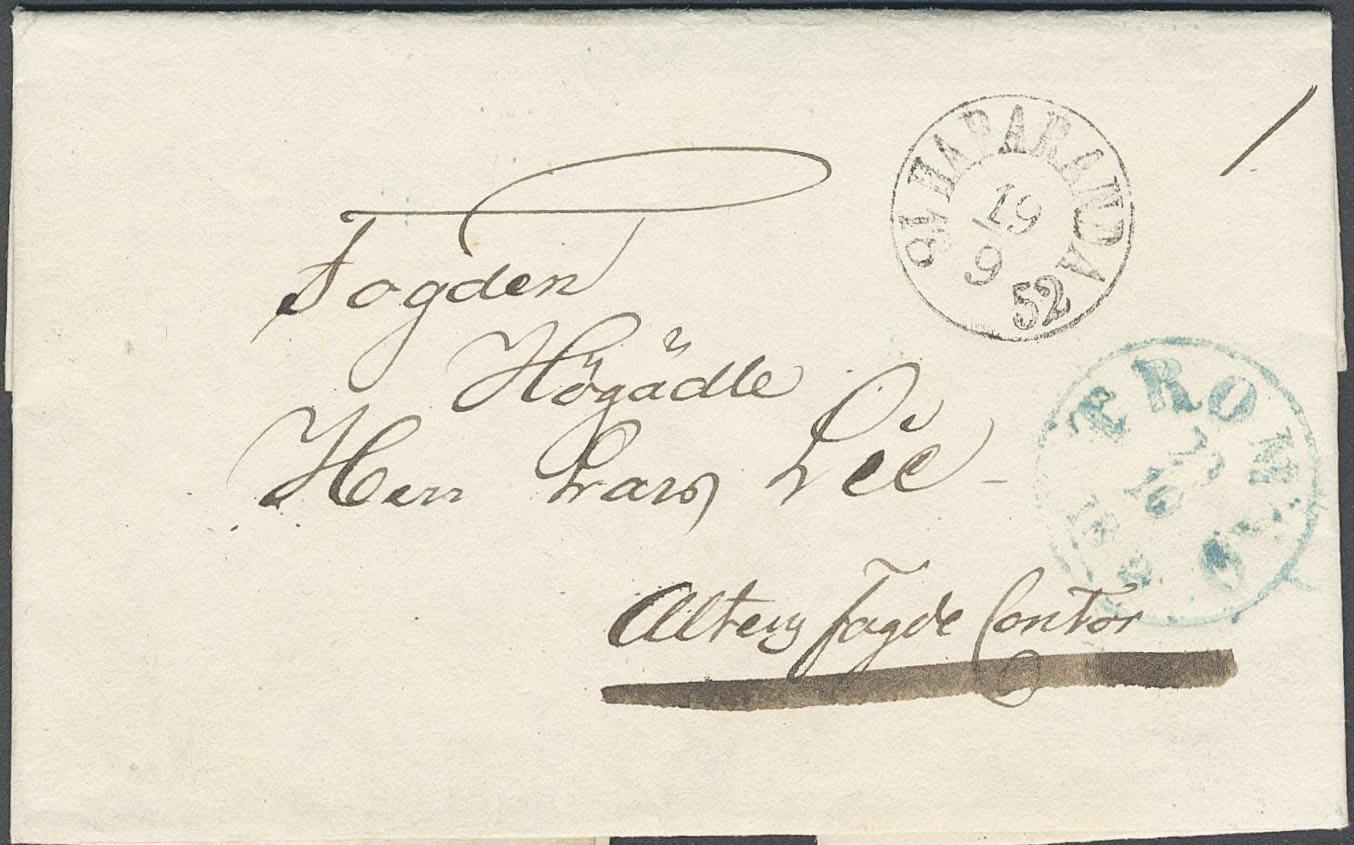 HAPARANDA
19
9
18 52
Fogden
Högädle
Herr Lars Lie
TROMSO
10
Altens Fogde Contor